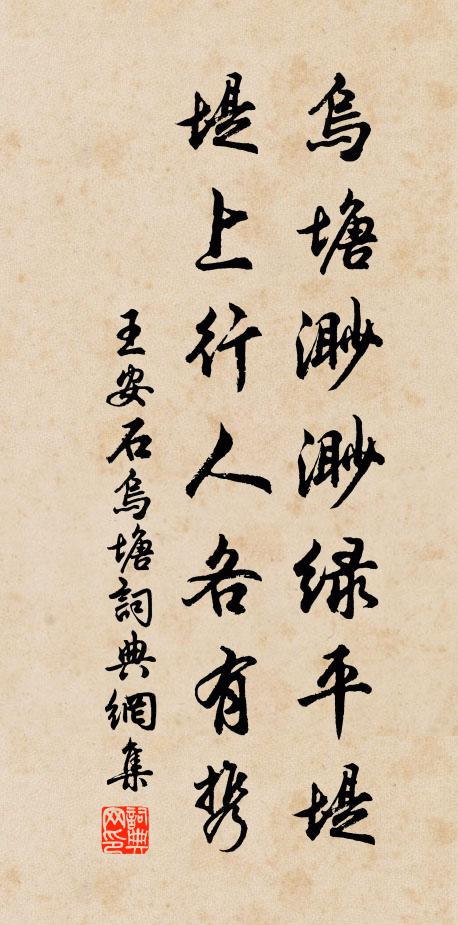 烏塘渺渺緑平堤
堤上行人各有携
王安石烏塘詞典網集
詞典網印